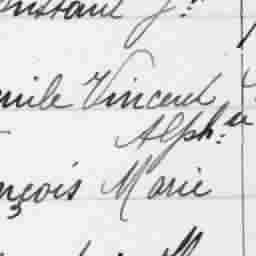 onstant J.
mile Vincent
Alph:
nçois Marie